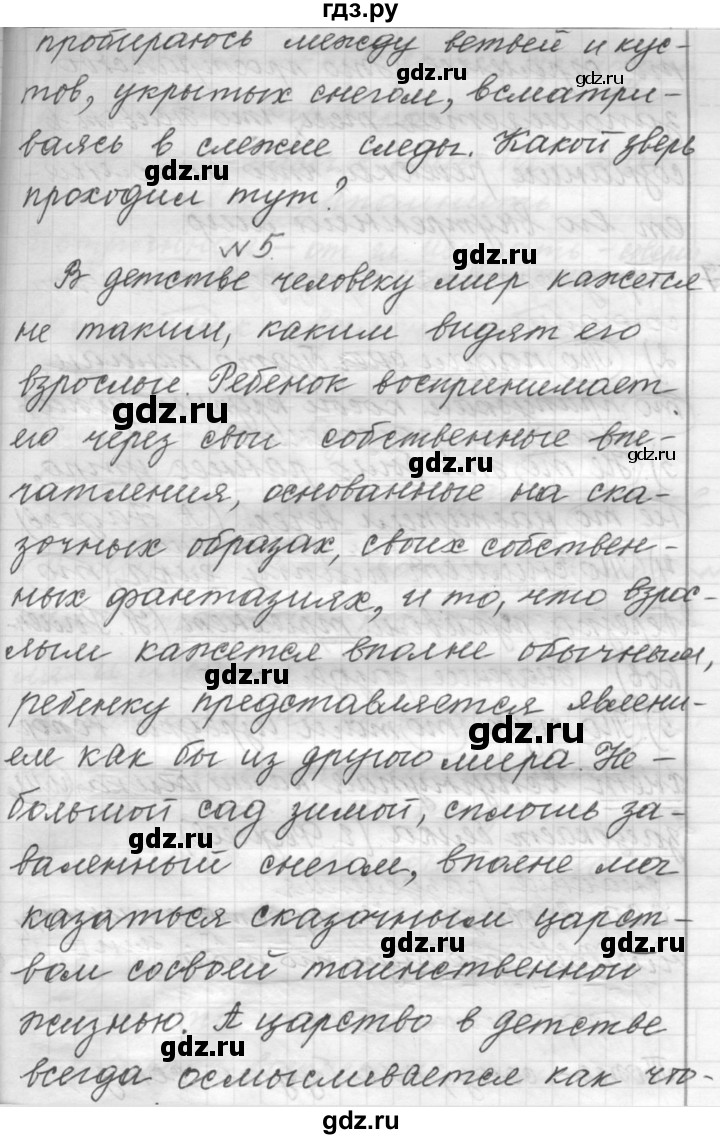 гдз.ру
пробираюсь между ветвей и кус-
gdz.ru
тов, укрытых снегом, всматри-
gdz.ru
ваясь в слежие следы. Какой зверь
gdz.ru
gdz.ru
проходил тут?
№5.
gdz.ru
В детстве человеку мир кажется
не таким, каким видят его
взрослые. Ребенок воспринимает
gdz.ru
его через свои собственные впе-
gdz.ru
gdz.ru
чатления, основанные на ска-
зочных образах, своих собствен-
gdz.ru
ных фантазиях, и то, что взрос-
лым кажется вполне обычным,
gdz.ru
ребенку представляется явлени-
gdz.ru
ем как бы из другого мира. Не-
большой сад зимой, сплошь за-
gdz.ru
валенный снегом, вполне мог
казаться сказочным царст-
gdz.ru
gdz.ru
вом сосвоей таинственной
жизнью. А царство в детстве
gdz.ru
всегда осмысливается как что-
gdz.ru